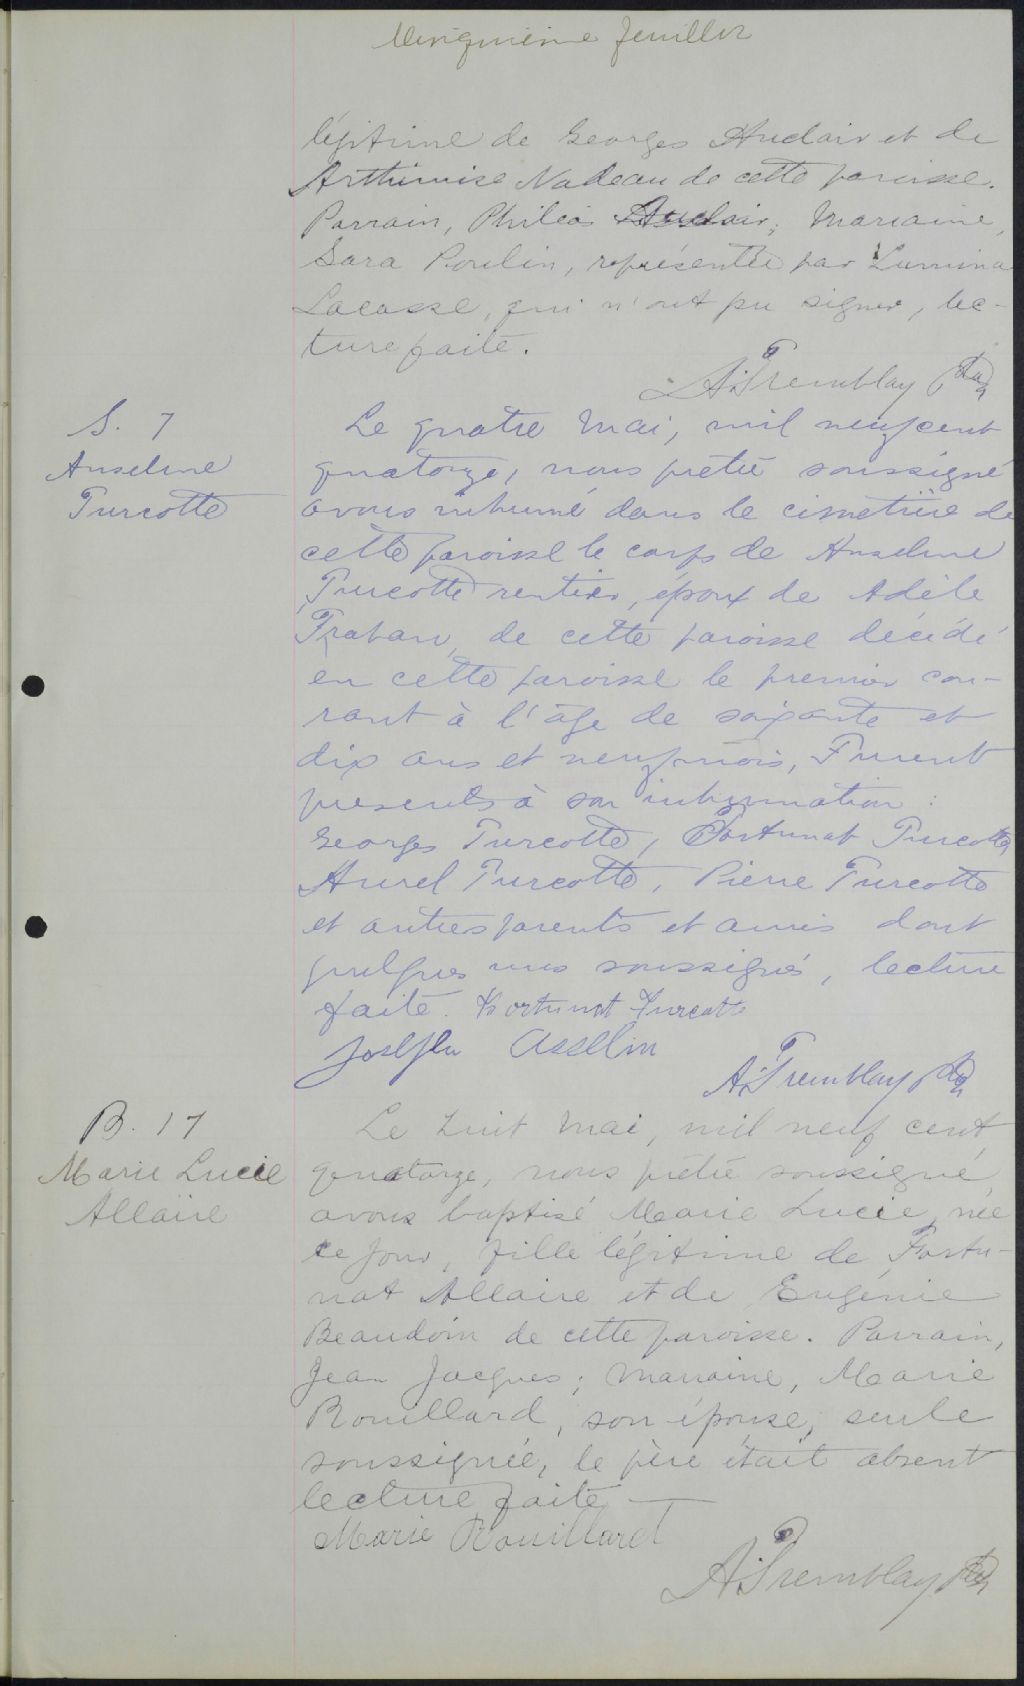 feuillet
légitime de Georges Auclair et de
Arthémise Nadeau de cette paroisse.
Parrain, Philéas Auclair; Marraine,
Sara Poulin, représentée par Lumina
Lacasse, qui n'ont pu signer, lec-
ture faite.
A. Tremblay Ptre
S. 7
Anselme
Turcotte
Le quatre Mai, mil neuf cent
quatorze, nous prêtre soussigné
avons inhumé dans le cimetière de
cette paroisse le corps de Anselme
Turcotte rentier, époux de Adèle
de cette paroisse décédé
en cette paroisse le premier cou-
rant à l'âge de soixante et
dix ans et neuf mois, Furent
présents à son inhumation :
Georges Turcotte, Fortunat Turcotte,
Aurel Turcotte, Pierre Turcotte
et autres parents et amis dont
quelques uns soussignés, lecture
faite. Fortunat Turcotte
Joseph Asselin
A. Tremblay Ptre
B. 17
Marie Lucie
Allaire
Le huit Mai, mil neuf cent
quatorze, nous prêtre soussigné,
avons baptisé Marie Lucie, née
ce jour, fille légitime de Fortu-
nat Allaire et de Eugénie
Beaudoin de cette paroisse. Parrain,
Jean Jacques; marraine, Marie
Rouillard, son épouse, seule
soussignée, le père était absent
lecture faite
Marie Rouillard
A. Tremblay Ptre